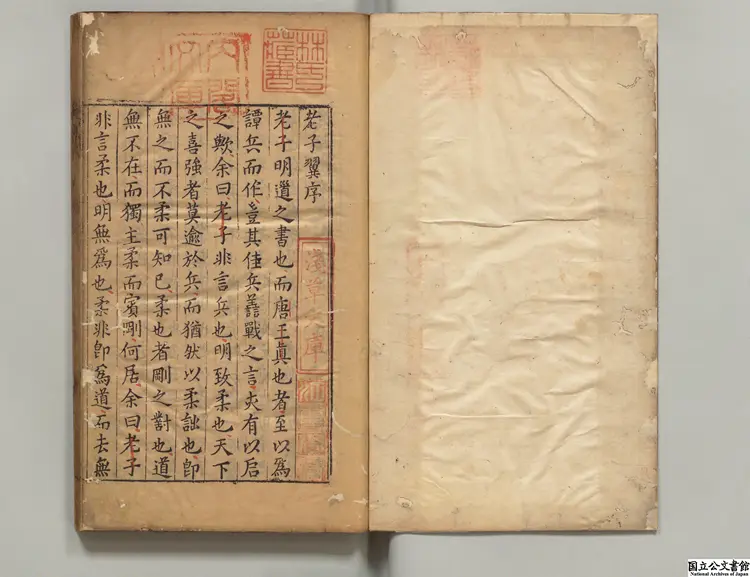 老子翼序
老子明道之書也而唐王真也者至以為
譚兵而作豈其佳兵善戰之言夾有以启
之歟余曰老子非言兵也明致柔也天下
之喜強者莫逾於兵而猶然以柔詘也即
無之而不柔可知已柔也者剛之對也道
無不在而獨主柔而賓剛何居余曰老子
非言柔也明無為也柔非即為道而去無
林氏藏書
淺草文庫
国立公文書館
National Archives of Japan